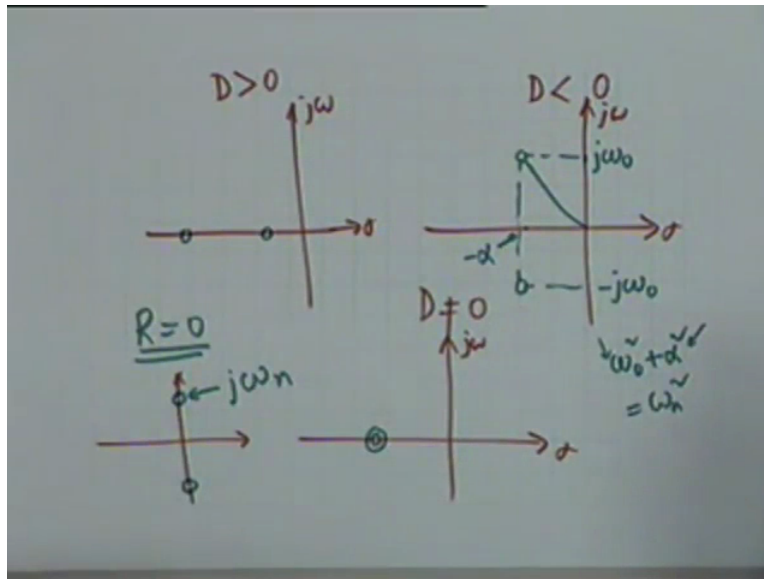 D>0
jω
σ
D< 0
jω
jω₀
-α
σ
-jω₀
ω₀˜+α˜
= ωₙ˜
R=0
jωn
D=0
jω
σ